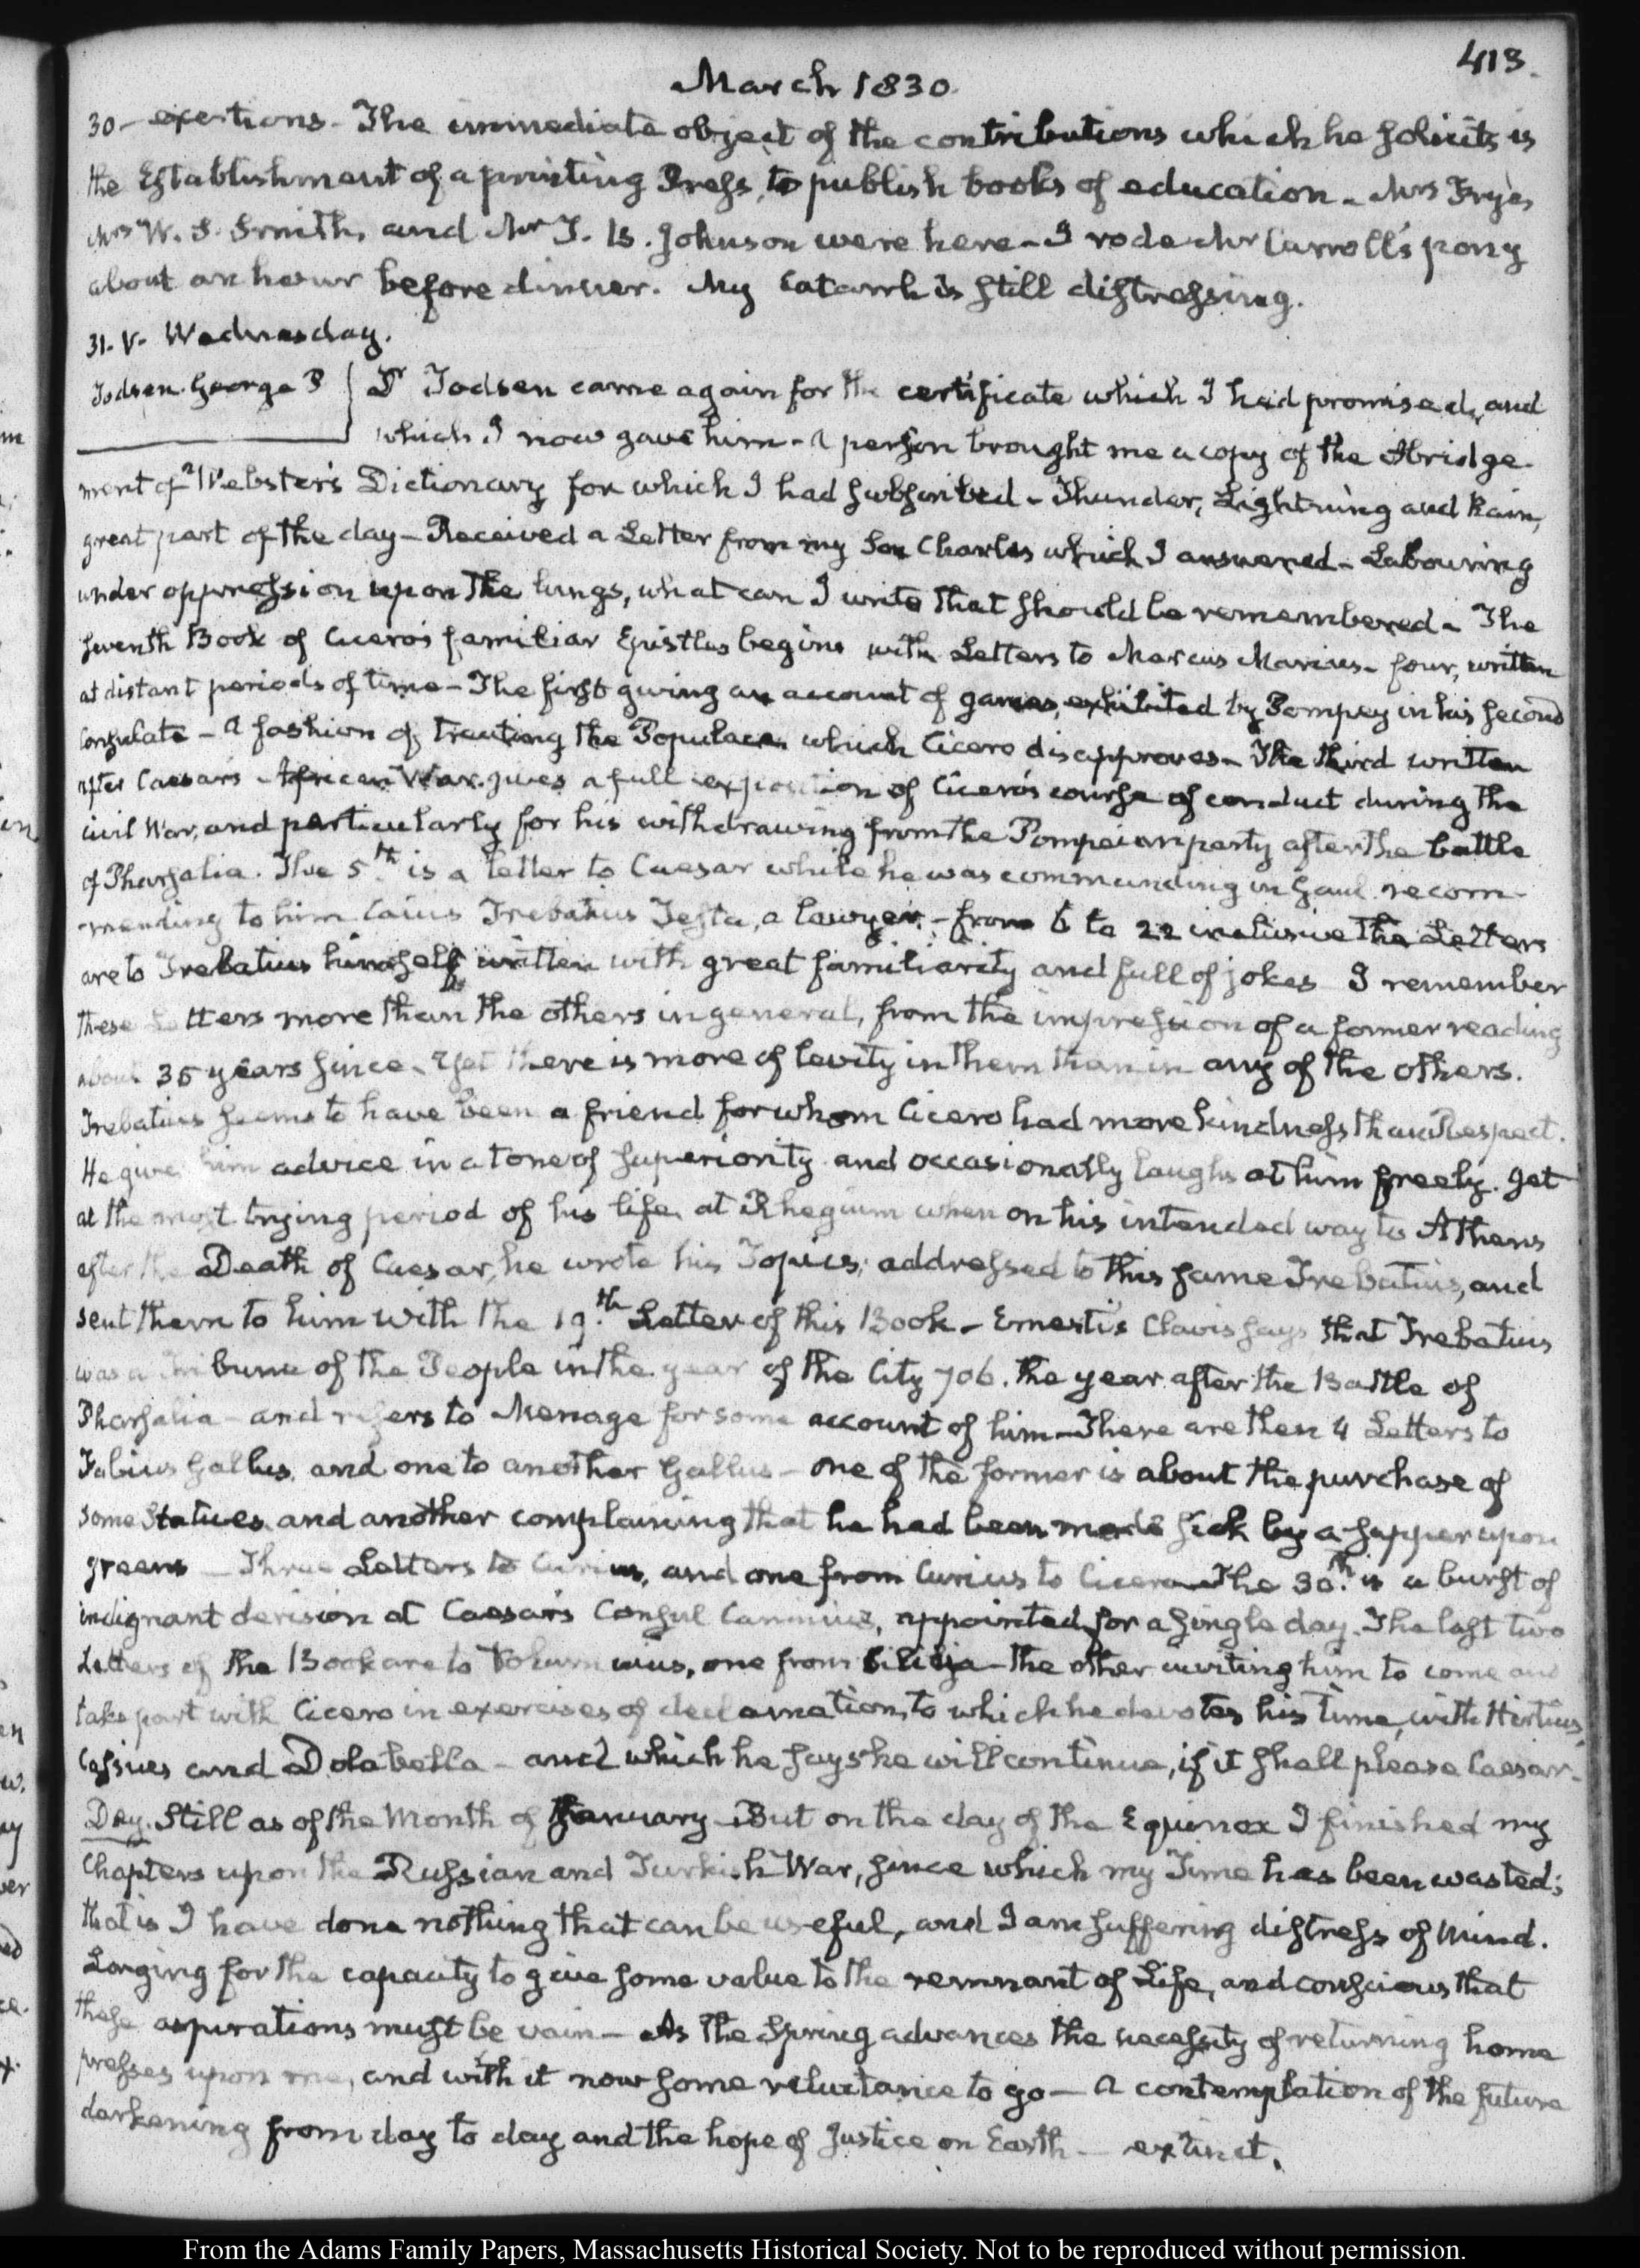 413.
March 1830.
30 - exertions - The immediate object of the contributions which he solicits is
the Establishment of a printing Press, to publish books of education - Mrs Frye,
Mrs W. S. Smith, and Mr T. B. Johnson were here - I rode Mr Carroll's pony
about an hour before dinner. My Catarrh is still distressing.
31. V. Wednesday.
Todsen. George P
Dr Todsen came again for the certificate which I had promised, and
which I now gave him - A person brought me a copy of the Abridge-
ment of Webster's Dictionary for which I had subscribed - Thunder, Lightning and Rain,
great part of the day - Received a Letter from my Son Charles which I answered - Labouring
under oppression upon the lungs, what can I write that should be remembered - The
seventh Book of Cicero's familiar Epistles begins with Letters to Marcus Marius - four, written
at distant periods of time - The first giving an account of games, exhibited by Pompey in his second
Consulate - A fashion of treating the Populace which Cicero disapproves - The third written
after Caesar's African War. gives a full exposition of Cicero's course of conduct during the
civil War, and particularly for his withdrawing from the Pompeian party after the battle
of Pharsalia. The 5th is a letter to Caesar while he was commanding in Gaul recom-
-mending to him Caius Trebatius Testa, a lawyer - from 6 to 22 inclusive the Letters
are to Trebatius himself written with great familiarity and full of jokes I remember
these Letters more than the others in general, from the impression of a former reading
about 35 years since - Yet there is more of levity in them than in any of the others.
Trebatius seems to have been a friend for whom Cicero had more kindness than Respect.
He give him advice in a tone of superiority and occasionally laughs at him freely. Yet
at the most trying period of his life, at Rhegium when on his intended way to Athens
after the Death of Caesar, he wrote his Topics, addressed to this same Trebatius, and
sent them to him with the 19th Letter of this Book - Ernesti's Clavis says that Trebatius
was a Tribune of the People in the year of the City 706. the year after the Battle of
Pharsalia - and refers to Menage for some account of him - There are then 4 Letters to
Fabius Gallus, and one to another Gallus - one of the former is about the purchase of
some Statues and another complaining that he had been made sick by a supper upon
greens - Three Letters to Curius, and one from Curius to Cicero - The 30th is a burst of
indignant derision at Caesar's Consul Caninius, appointed for a single day. The last two
Letters of the Book are to Volumnius, one from Cilicia - the other inviting him to come and
take part with Cicero in exercises of declamation, to which he devotes his time, with Hirtius,
Cassius and Dolabella - and which he says he will continue, if it shall please Caesar -
Day. Still as of the Month of January - But on the day of the Equinox I finished my
Chapters upon the Russian and Turkish War, since which my Time has been wasted;
that is I have done nothing that can be useful, and I am suffering distress of mind.
Longing for the capacity to give some value to the remnant of Life, and conscious that
these aspirations must be vain - As the Spring advances the necessity of returning home
presses upon me, and with it now some reluctance to go - A contemplation of the future
darkening from day to day and the hope of Justice on Earth - extinct.
From the Adams Family Papers, Massachusetts Historical Society. Not to be reproduced without permission.